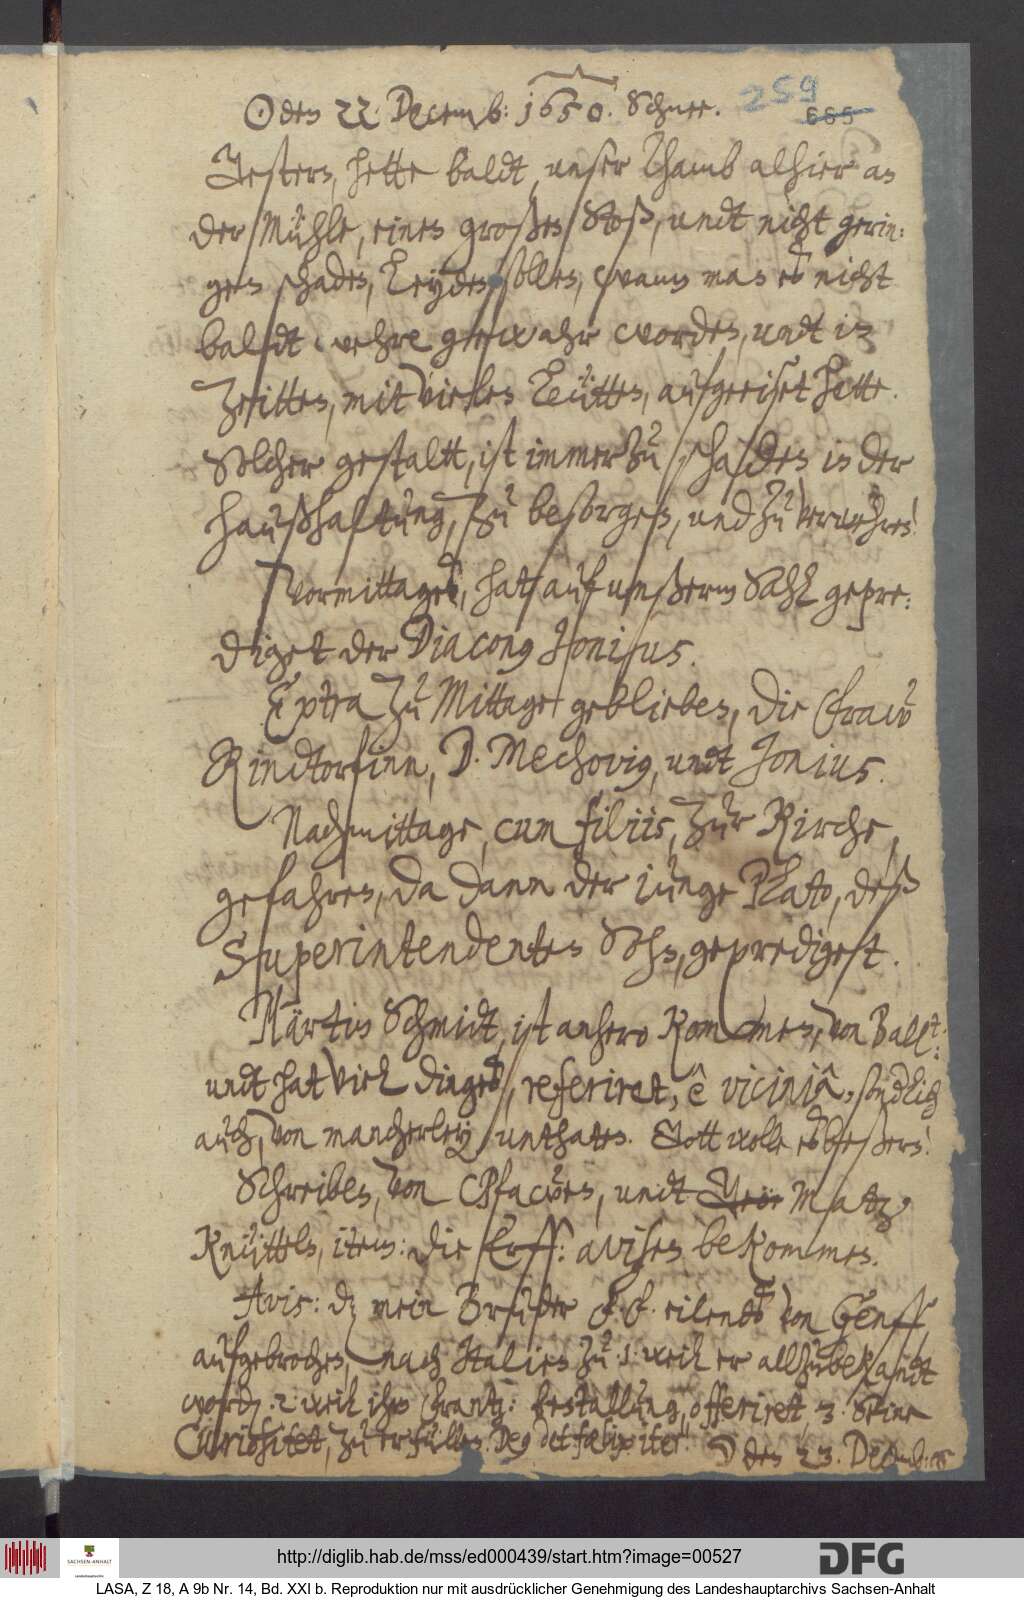 ☉ den 22. Decemb: 1650. Schnee.
259
685
Gestern, hette baldt, unser Thamb alhier an
der Mühle, einen großen Stoß, undt nicht gerin:
gen schaden, Leyden sollen, wann man es nicht
baldt wehre gewahr worden, undt in
Zeitten, mit vielen Leütten, aufgeeiset hette.
Solcher gestaltt, ist immerzu schaden in der
haußhaltung, zu besorgen, und zu verwehren!
Vormittages, hat auf unßerm Sahl gepre:
diget der Diaconus Jonius.
Extra zu Mittage geblieben, die Fraw
Rindtorfinn, D. Mechovius, undt Jonius.
Nachmittage, cum filiis, zur Kirche,
gefahren, da dann der iunge Plato, deß
Superintendenten Sohn, geprediget.
Märtin Schmidt, ist anhero kommen, von Ball:
undt hat viel dinges, referiret, è viciniâ,
auch, von mancherley unthaten. Gott wolle es beßern!
Schreiben, von Pfawen, undt Matz
Knüttel, item: die Erff: avisen bekommen.
Avis: dz mein Bruder F. F. eilends von Genff,
aufgebrochen, nach Italien zu 1. weil er allzubekandt
worden. 2. weil ihm Frantz: bestallung, offeriret 3. Seine
Curiositet, zu erfüllen. Deus det fœliciter!
☽ den 23. Decemb:
http://diglib.hab.de/mss/ed000439/start.htm?image=00527
SACHSEN-ANHALT
DFG
LASA, Z 18, A 9b Nr. 14, Bd. XXI b. Reproduktion nur mit ausdrücklicher Genehmigung des Landeshauptarchivs Sachsen-Anhalt